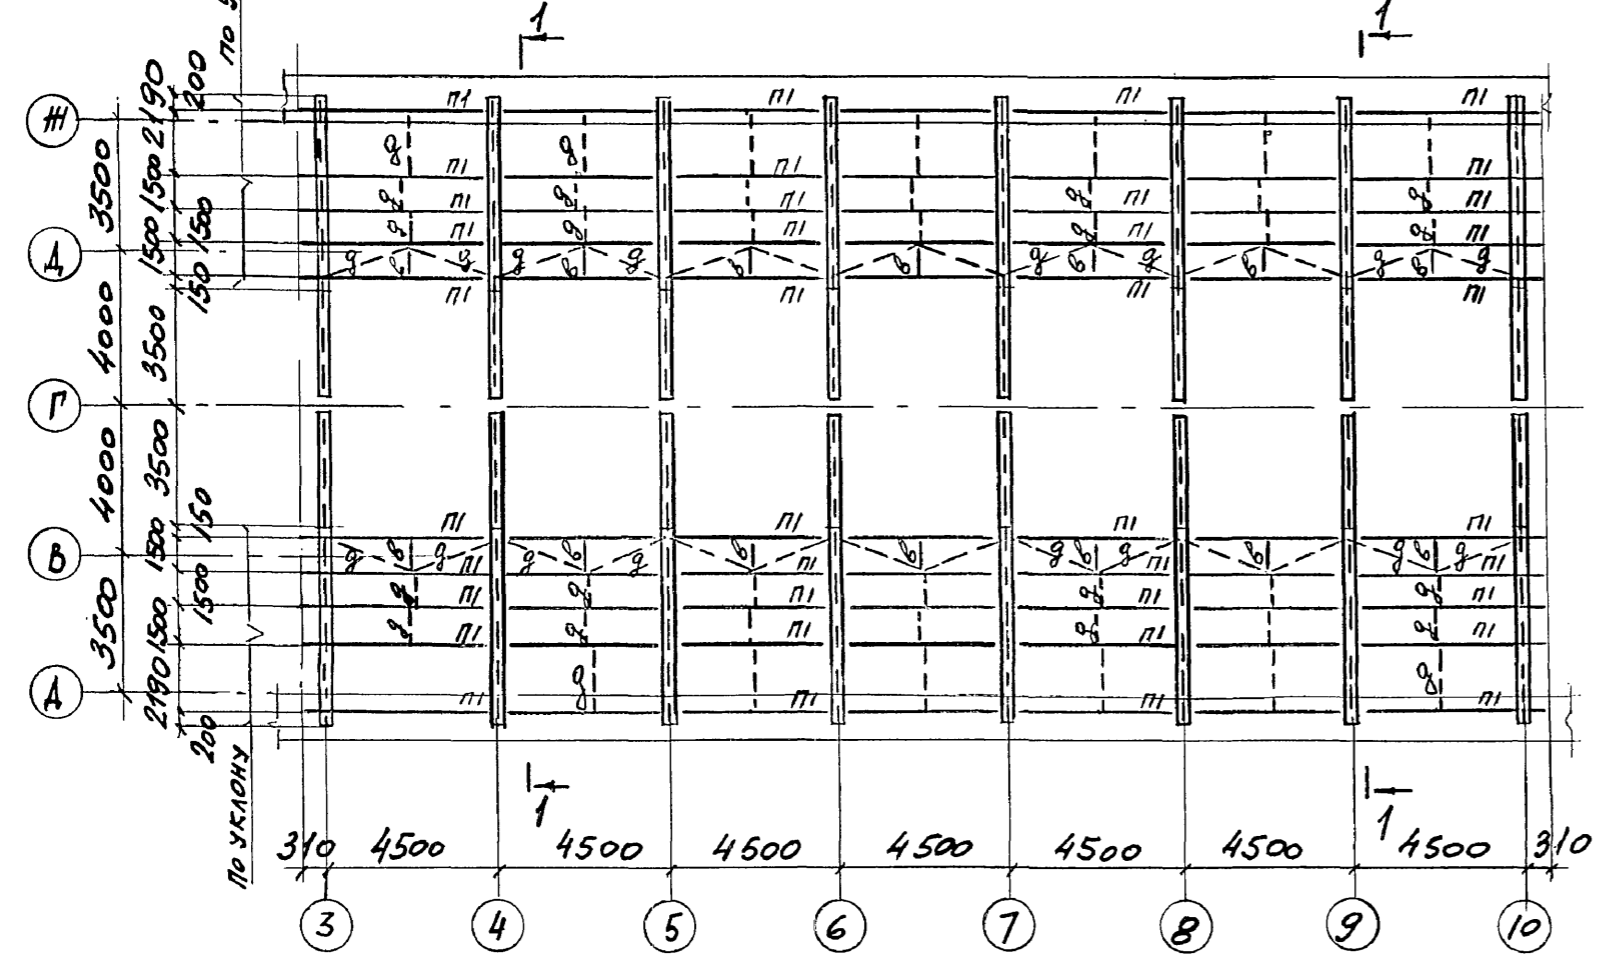 1 1
по
Ж
Д
Г
В
Д
3500
4000
4000
3500
200
2190
1500
1500
1500
150
3500
3500
150
1500
1500
1500
2190
200
по уклону
П1 П1 П1 П1
g g
П1 П1 П1
g g П1 П1 g П1 g П1
g П1 g П1 g П1 g П1
g в g g в g в в g в g в g в g
П1 П1 П1 П1
П1 П1 П1 П1
g в g g в g в в g в g в g в g
П1 П1 П1 П1
g П1 g П1 g П1 g П1
g П1 g П1 g П1 g П1
g g
П1 П1 П1 П1
1 1
310 4500 4500 4500 4500 4500 4500 4500 310
3 4 5 6 7 8 9 10